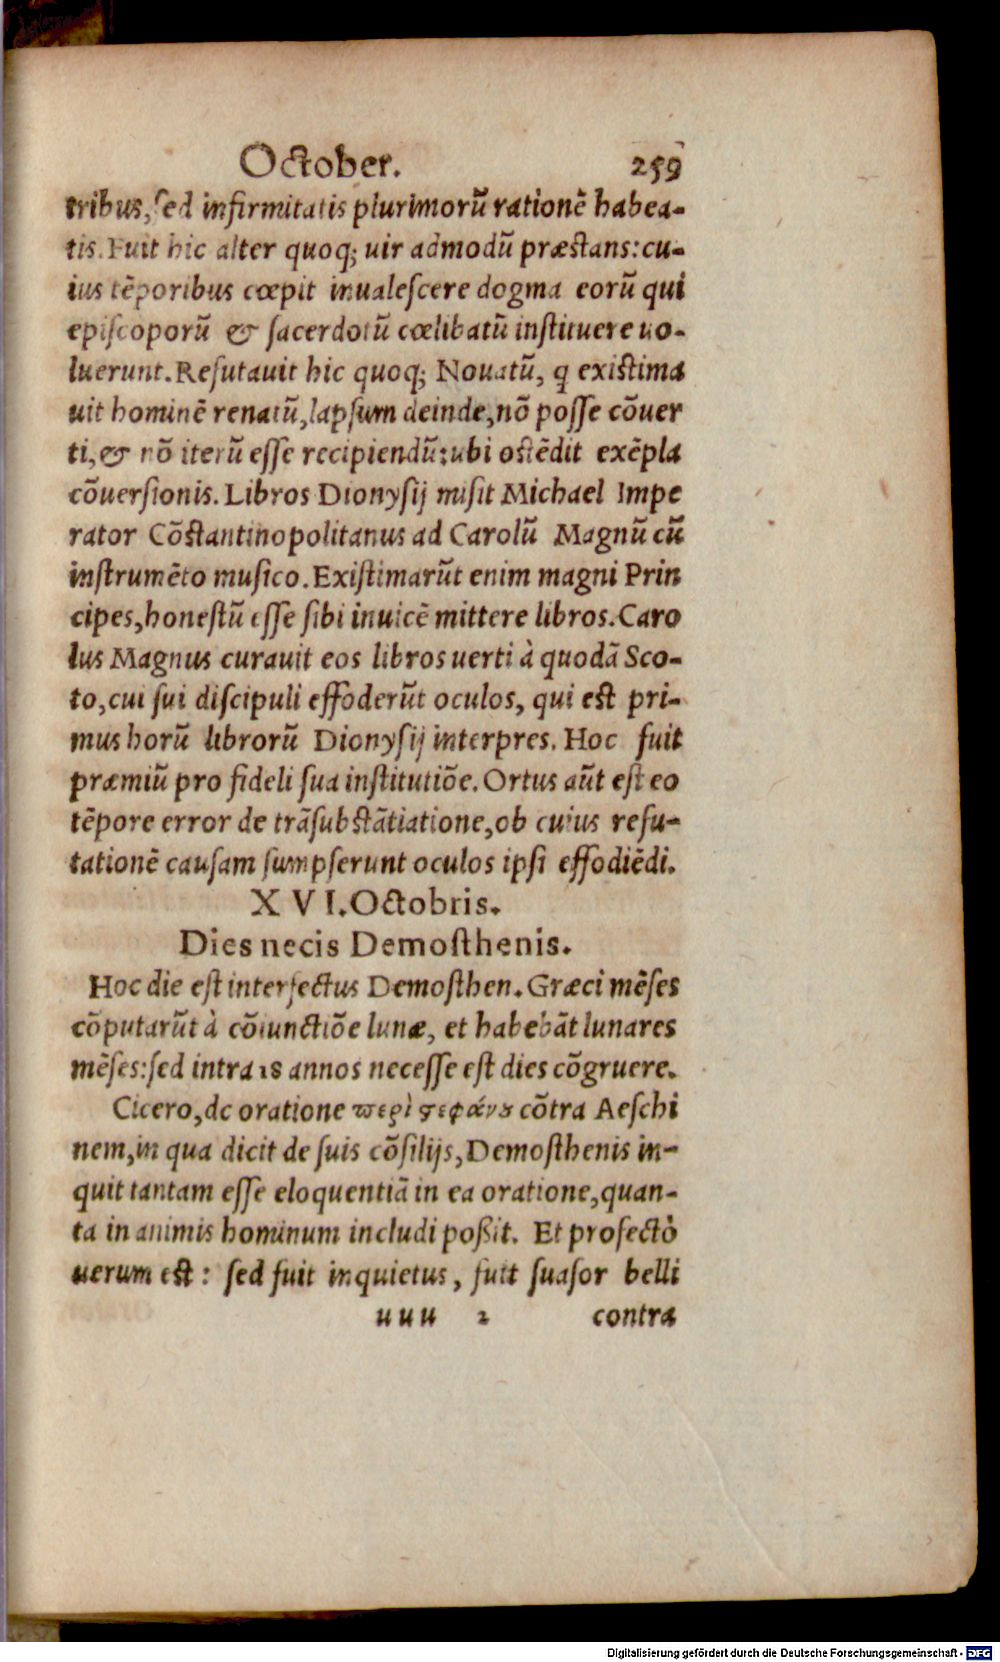 October. 259
tribus, sed infirmitatis plurimorũ rationẽ habea-
tis. Fuit hic alter quoq; uir admodũ præstans: cu-
ius tẽporibus cœpit inualescere dogma eorũ qui
episcoporũ & sacerdotũ cœlibatũ instituere uo-
luerunt. Refutauit hic quoq; Nouatũ, q existima
uit hominẽ renatũ, lapsum deinde, nõ posse cõuer
ti, & nõ iterũ esse recipiendũ: ubi ostẽdit exẽpla
cõuersionis. Libros Dionysij misit Michael Impe
rator Cõstantinopolitanus ad Carolũ Magnũ cũ
instrumẽto musico. Existimarũt enim magni Prin
cipes, honestũ esse sibi inuicẽ mittere libros. Caro
lus Magnus curauit eos libros uerti à quodã Sco-
to, cui sui discipuli effoderũt oculos, qui est pri-
mus horũ librorũ Dionysij interpres. Hoc fuit
præmiũ pro fideli sua institutiõe. Ortus aũt est eo
tẽpore error de trãsubstãtiatione, ob cuius refu-
tationẽ causam sumpserunt oculos ipsi effodiẽdi.
XVI. Octobris.
Dies necis Demosthenis.
Hoc die est interfectus Demosthen. Græci mẽses
cõputarũt à cõiunctiõe lunæ, et habebãt lunares
mẽses: sed intra 18 annos necesse est dies cõgruere.
Cicero, de oratione περὶ ςεφάνȣ cõtra Aeschi
nem, in qua dicit de suis cõsilijs, Demosthenis in-
quit tantam esse eloquentiã in ea oratione, quan-
ta in animis hominum includi poßit. Et profectò
uerum est: sed fuit inquietus, fuit suasor belli
uuu 2 contra
Digitalisierung gefördert durch die Deutsche Forschungsgemeinschaft - DFG